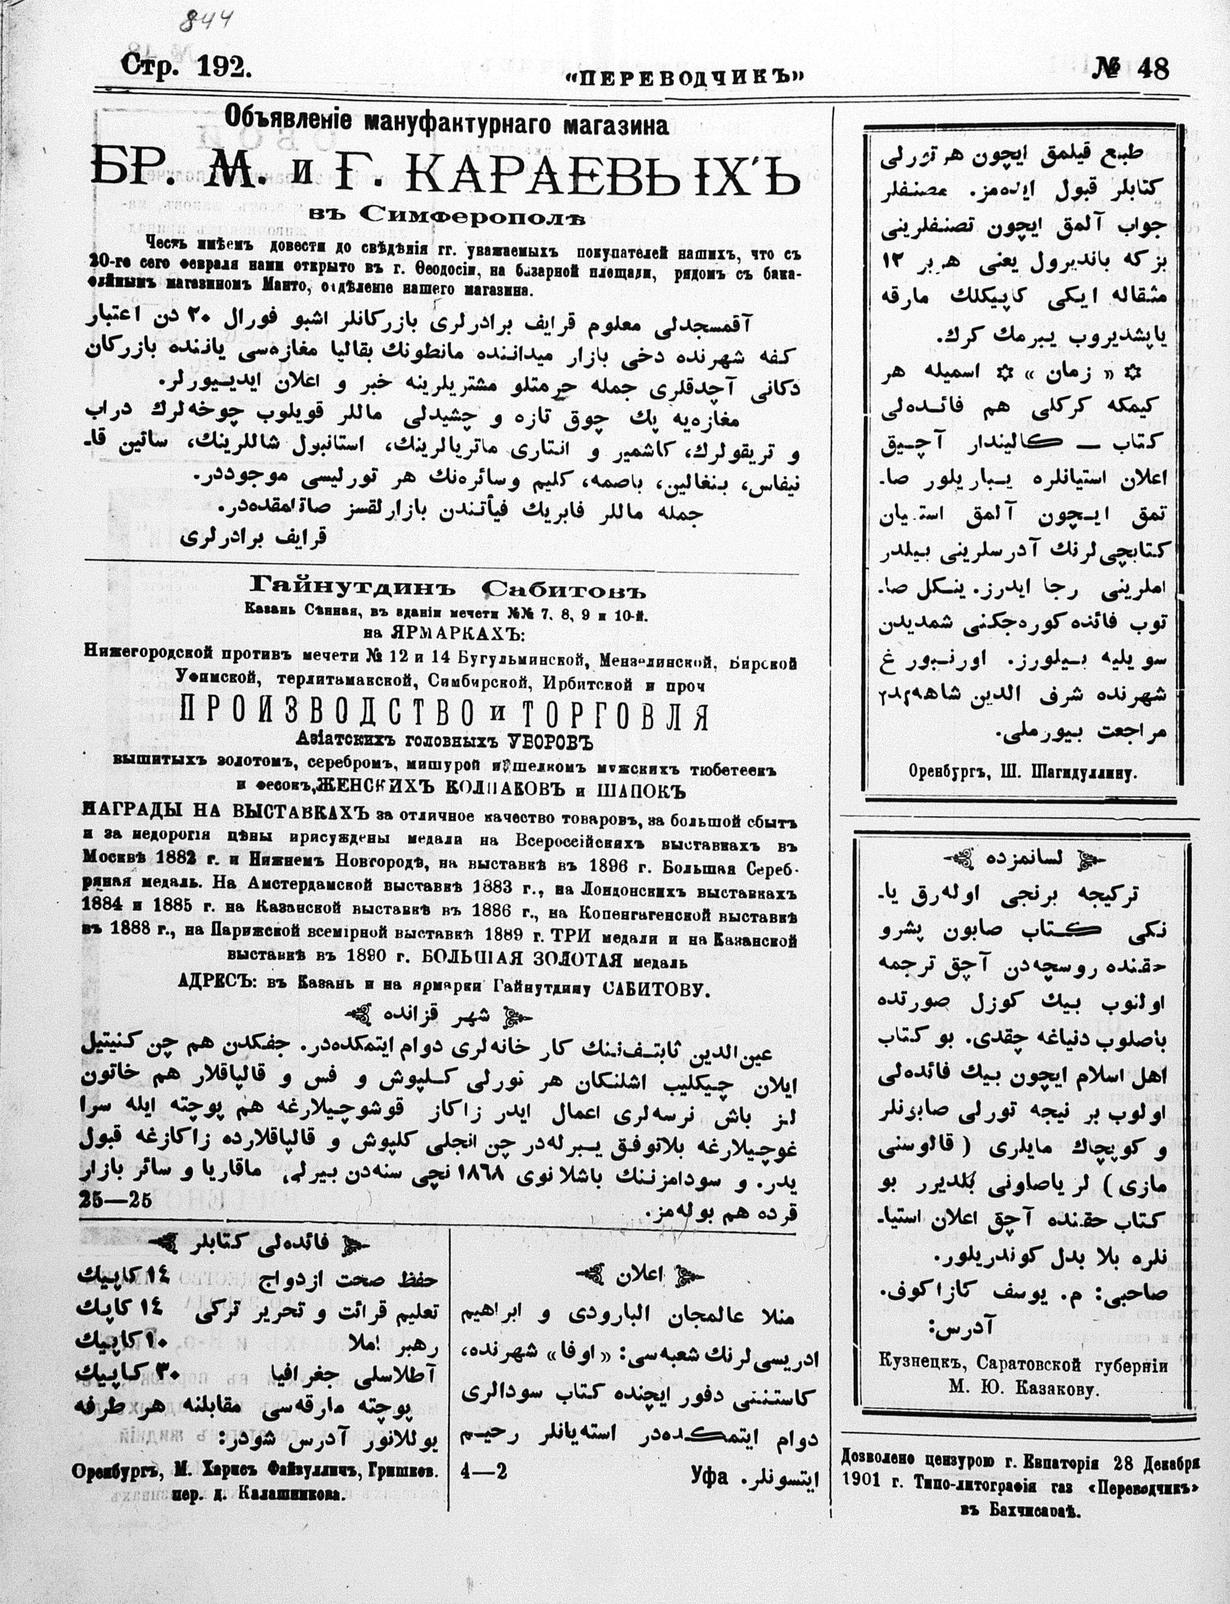 844
Стр. 192.
«ПЕРЕВОДЧИКЪ»
№ 48
Объявленіе мануфактурнаго магазина
БР. М. и Г. КАРАЕВЫХЪ
въ Симферополѣ
Честь имѣемъ довести до свѣдѣнія гг. уважаемыхъ покупателей нашихъ, что съ
20-го сего февраля нами открыто въ г. Ѳеодосіи, на базарной площади, рядомъ съ бака-
лѣйнымъ магазиномъ Манто, отдѣленіе нашего магазина.
آقمسجدلی معلوم قرایف برادرلری بازرکانلر اشبو فورال ٢٠ دن اعتبار
کفه شهرنده دخی بازار میداننده مانطونك بقالیا مغازه‌سی یاننده بازرکان
دکانی آچدقلری جمله حرمتلو مشتریلرینه خبر و اعلان ایدیورلر.
مغازه‌یه پك چوق تازه و چشیدلی ماللر قویلوب چوخه‌لرك دراپ
و تریقولرك، کاشمیر و انتاری ماتریالرینك، استانبول شاللرینك، ساتین قاـ
نیفاس، بنغالین، باصمه، کلیم وسائره‌نك هر تورلیسی موجوددر.
جمله ماللر فابریك فیأتندن بازارلقسز صاتلمقده‌در.
قرایف برادرلری
Гайнутдинъ Сабитовъ
Казань Сѣнная, въ зданіи мечети №№ 7, 8, 9 и 10-й.
на ЯРМАРКАХЪ:
Нижегородской противъ мечети № 12 и 14 Бугульминской, Мензелинской, Бирской
Уфимской, терлитамакской, Симбирской, Ирбитской и проч
ПРОИЗВОДСТВО и ТОРГОВЛЯ
Азіатскихъ головныхъ УБОРОВЪ
вышитыхъ золотомъ, серебромъ, мишурой и шелкомъ мужскихъ тюбетеекъ
и фесокъ, ЖЕНСКИХЪ КОЛПАКОВЪ и ШАПОКЪ
НАГРАДЫ НА ВЫСТАВКАХЪ за отличное качество товаровъ, за большой сбытъ
и за недорогія цѣны присуждены медали на Всероссійскихъ выставкахъ въ
Москвѣ 1882 г. и Нижнемъ Новгородѣ, на выставкѣ въ 1896 г. Большая Сереб-
ряная медаль. На Амстердамской выставкѣ 1883 г., на Лондонскихъ выставкахъ
1884 и 1885 г. на Казанской выставкѣ въ 1886 г., на Копенгагенской выставкѣ
въ 1888 г., на Парижской всемірной выставкѣ 1889 г. ТРИ медали и на Казанской
выставкѣ въ 1890 г. БОЛЬШАЯ ЗОЛОТАЯ медаль
АДРЕСЪ: въ Казань и на ярмарки Гайнутдину САБИТОВУ.
شهر قزانده
عین‌الدین ثابتف‌ننك کار خانه‌لری دوام ایتمکده‌در. جفکدن هم چن کنیتیل
ایلان چیکلیب اشلنکان هر تورلی کلپوش و فس و قالپاقلار هم خاتون
لنز باش نرسه‌لری اعمال ایدر زاکاز قوشوچیلارغه هم پوچته ایله سرا
غوچیلارغه بلاتوفق یبرله‌در چن انجلی کلپوش و قالپاقلارده زاکازغه قبول
یدر. و سودامزننك باشلانوی ١٨٦٨ نچی سنه‌دن بیرلی ماقاریا و سائر بازار
قرده هم بوله‌مز.
25—25
فائده‌لی کتابلر
حفظ صحت ازدواج ١٤ کاپیك
تعلیم قرائت و تحریر ترکی ١٤ کاپك
رهبر املا ١٠ کاپیك
آطلاسلی جغرافیا ٣٠ کاپیك
پوچته مارقه‌سی مقابلنه هر طرفه
یوللانور آدرس شودر:
Оренбургъ, М. Харисъ Файзуллинъ, Гришков.
пер. д. Калашникова.
اعلان
منلا عالمجان البارودی و ابراهیم
ادریسی‌لرنك شعبه‌سی: «اوفا» شهرنده،
کاستننی دفور ایچنده کتاب سودالری
دوام ایتمکده‌در استه‌یانلر رحیم
ایتسونلر. Уфа
4—2
طبع قیلمق ایچون هر تورلی
کتابلر قبول ایده‌مز. مصنفلر
جواب آلمق ایچون تصنفلرینی
بزکه باندیرول یعنی هر بر ١٢
مثقاله ایکی کاپیکلك مارقه
یاپشدیروب یبرمك کرك.
« زمان » اسمیله هر
کیمکه کرکلی هم فائده‌لی
کتاب — کالیندار آچیق
اعلان استیانلره یباریلور صاـ
تمق ایچون آلمق استیان
کتابچی‌لرنك آدرسلرینی بیلدر
املرینی رجا ایدرز. ینکل صاـ
توب فائده کوره‌جکنی شمدیدن
سویلیه بیلورز. اورنبورغ
شهرنده شرف الدین شاهمدم
مراجعت بیورملی.
Оренбургъ, Ш. Шагидуллину.
لسانمزده
ترکیجه برنجی اوله‌رق یاـ
نکی کتاب صابون پشرو
حقنده روسچه‌دن آچق ترجمه
اولنوب بیك کوزل صورتده
باصلوب دنیاغه چقدی. بو کتاب
اهل اسلام ایچون بیك فائده‌لی
اولوب بر نیچه تورلی صابونلر
و کوپچاك مایلری ( قالوسنی
مازی ) لر یاصاونی بلدیرر بو
کتاب حقنده آچق اعلان استیاـ
نلره بلا بدل کوندریلور.
صاحبی: م. یوسف کازاکوف.
آدرس:
Кузнецкъ, Саратовской губерніи
М. Ю. Казакову.
Дозволено цензурою г. Евпаторія 28 Декабря
1901 г. Типо-литографія газ «Переводчикъ»
въ Бахчисараѣ.